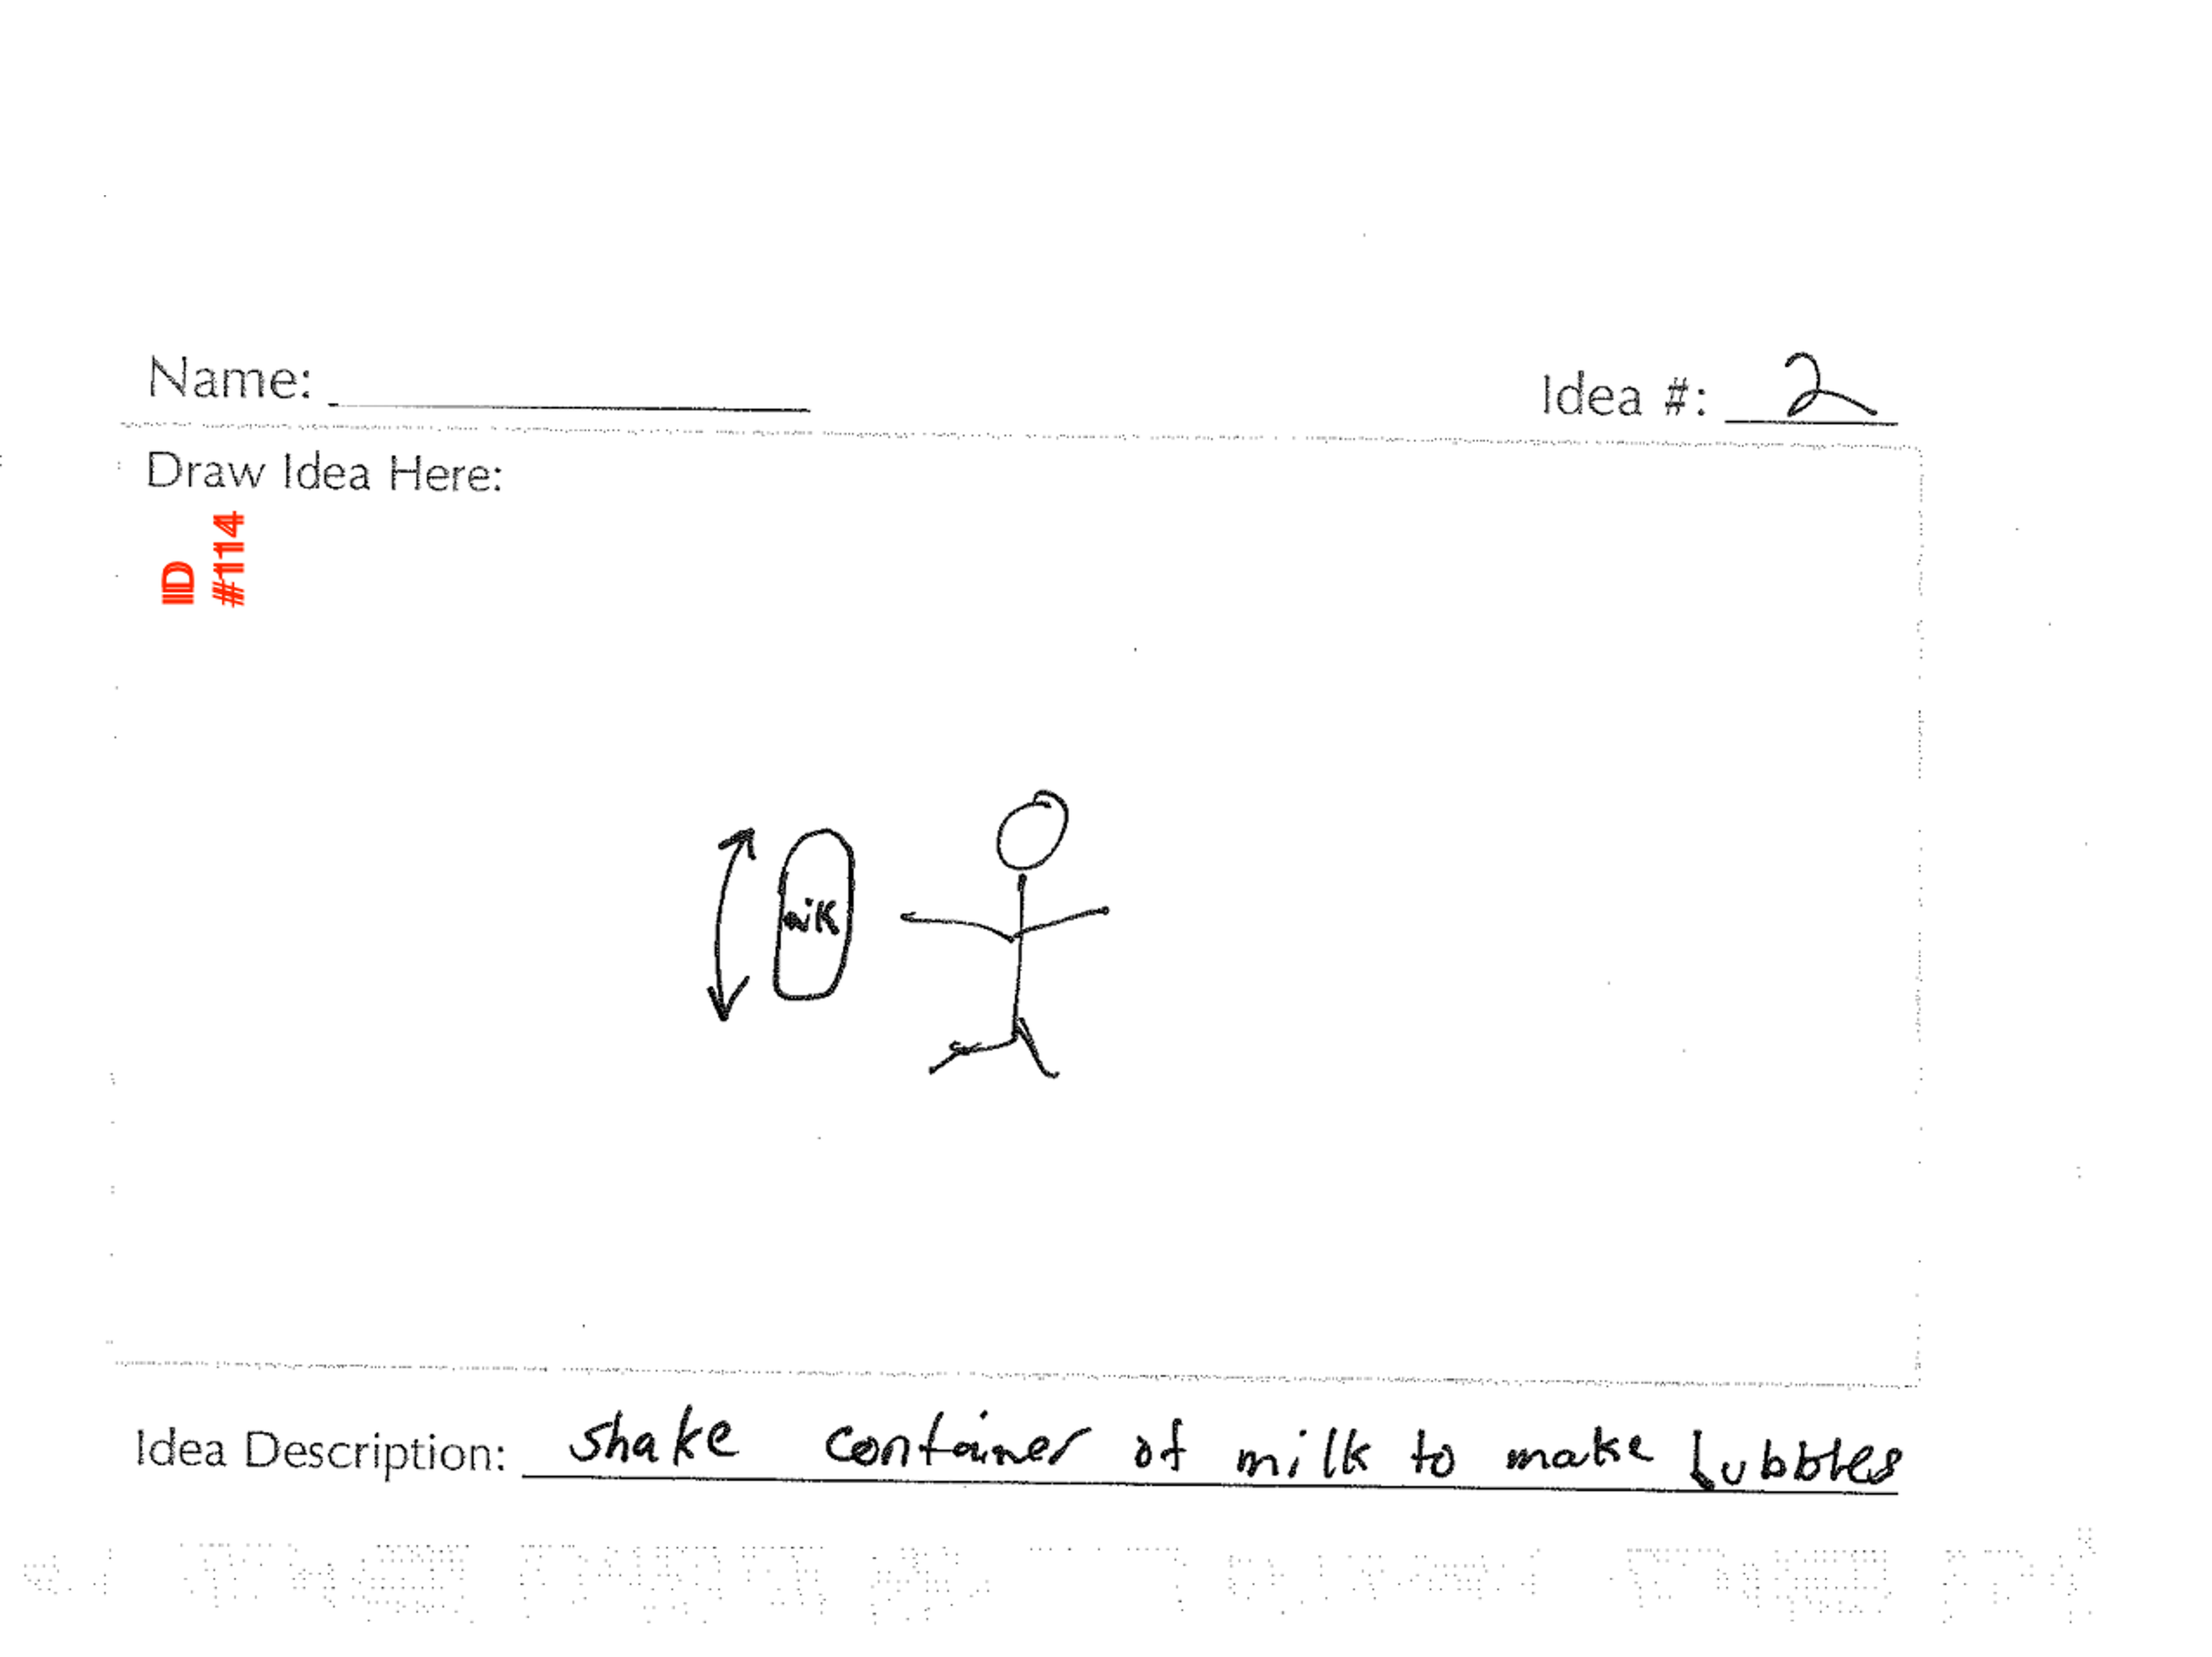 Name:
Idea #: 2
Draw Idea Here:
ID
#114
milk
Idea Description: shake container of milk to make bubbles